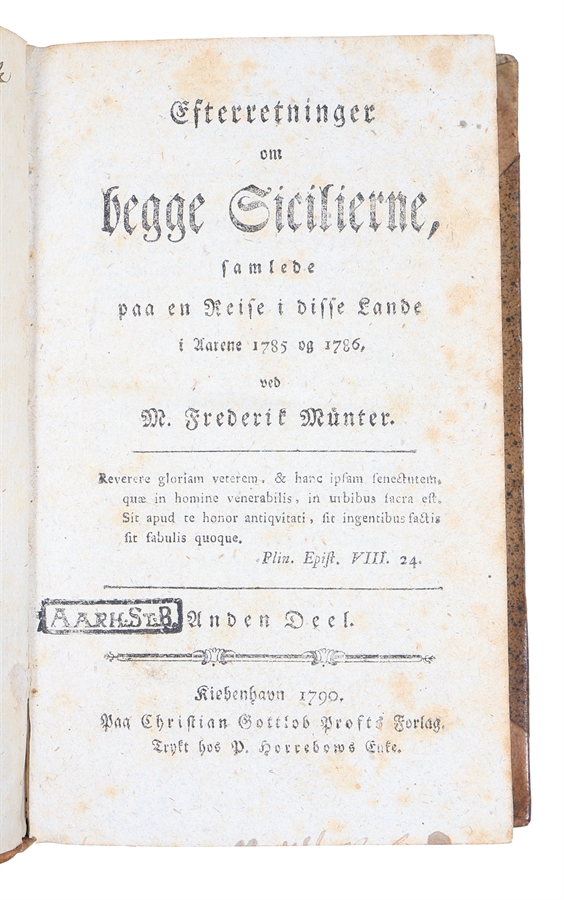 Efterretninger
om
begge Sicilierne,
samlede
paa en Reise i disse Lande
i Aarene 1785 og 1786,
ved
M. Frederik Münter.
Reverere gloriam veterem, & hanc ipsam senectutem,
quæ in homine venerabilis, in urbibus sacra est.
Sit apud te honor antiqvitati, sit ingentibus factis
sit fabulis quoque.
Plin. Epist. VIII. 24.
AARH.STB.
Anden Deel.
Kiøbenhavn 1790.
Paa Christian Gottlob Profts Forlag.
Trykt hos P. Horrebows Enke.